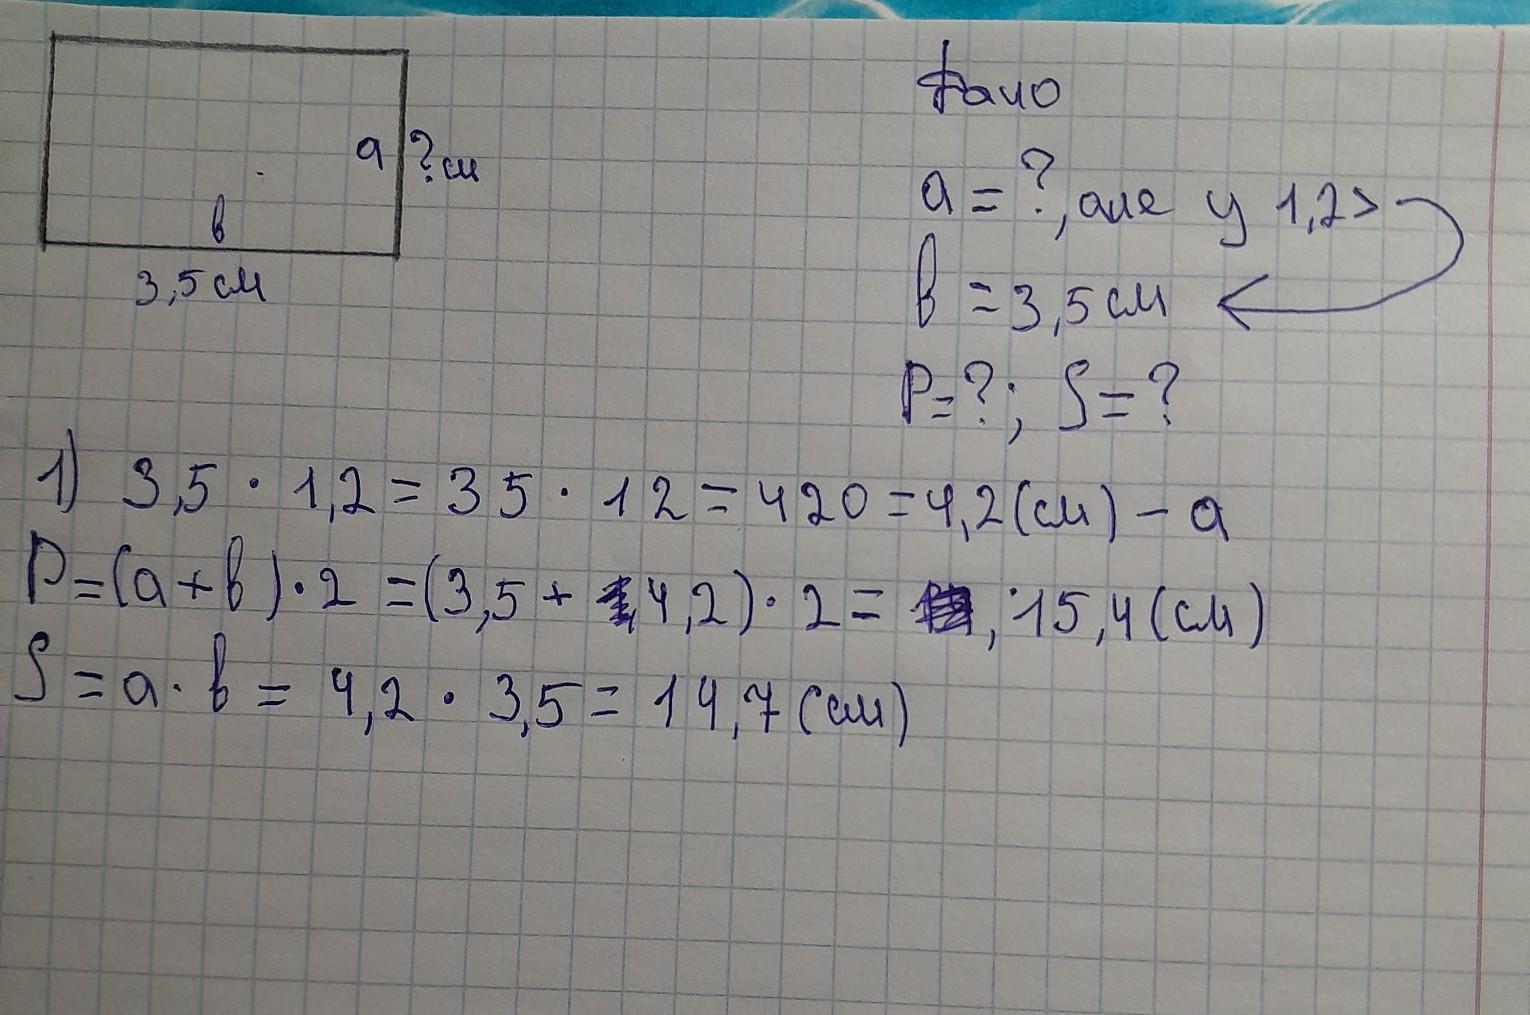 a ? см
в
3,5 см
Дано
a = ?, але у 1,2 >
в = 3,5 см
P = ?; S = ?
1) 3,5 · 1,2 = 35 · 12 = 420 = 4,2 (см) - a
P = (a + в) · 2 = (3,5 + 4,2) · 2 = 15,4 (см)
S = a · в = 4,2 · 3,5 = 14,7 (см)